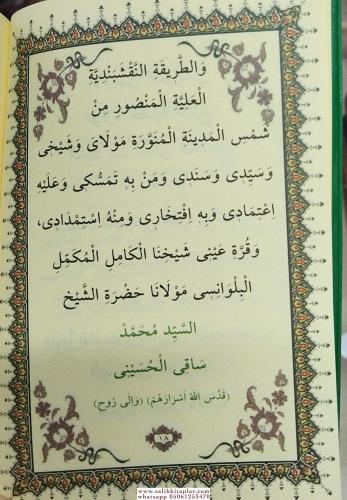 وَالطَّرِيقَةِ النَّقْشَبَنْدِيَّةِ
الْعَلِيَّةِ الْمَنْصُورِ مِنْ
شَمْسِ الْمَدِينَةِ الْمُنَوَّرَةِ مَوْلَاىَ وَشَيْخِى
وَسَيِّدِى وَسَنَدِى وَمَنْ بِهِ تَمَسُّكِى وَعَلَيْهِ
اِعْتِمَادِى وَبِهِ اِفْتِخَارِى وَمِنْهُ اِسْتِمْدَادِى،
وَقُرَّةِ عَيْنِى شَيْخِنَا الْكَامِلِ الْمُكَمِّلِ
الْبِلْوَانِسِى مَوْلَانَا حَضْرَةِ الشَّيْخِ
السَّيِّدِ مُحَمَّدْ
سَاقِى الْحُسَيْنِى
(قَدَّسَ اللهُ اَسْرَارَهُمْ) (وَاِلَى رُوحِ)
١٨
www.salihkitaplar.com
whatsapp 05061255470